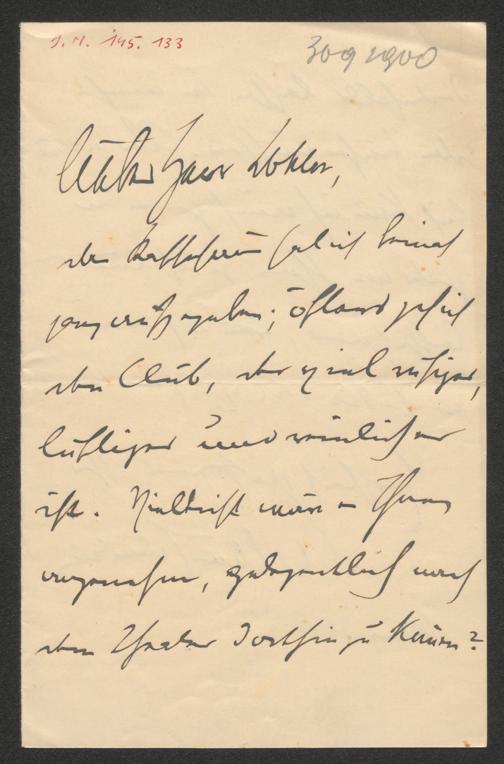 I.N. 145.133
30 9 1900
Lieber Herr Doktor,
das Kaffeehaus hab ich beinah
ganz aufgegeben; öfters geh ich
in den Club, der viel ruhiger,
luftiger und reinlicher
ist. Vielleicht wäre es Ihnen
angenehm, gelegentlich nach
dem Theater dorthin zu kommen?